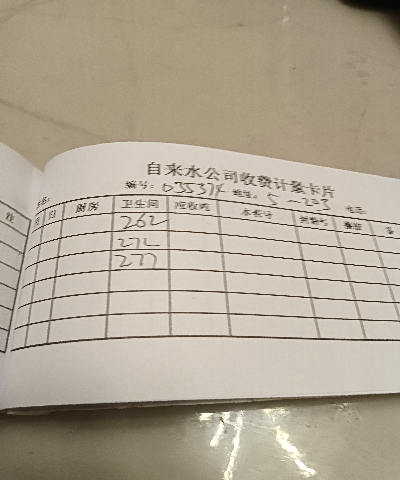 自来水公司收费计量卡片
编号：035374 地址：5-203 电话
月 日 厨房 卫生间 应收吨 本表号 封签号
262
272
277